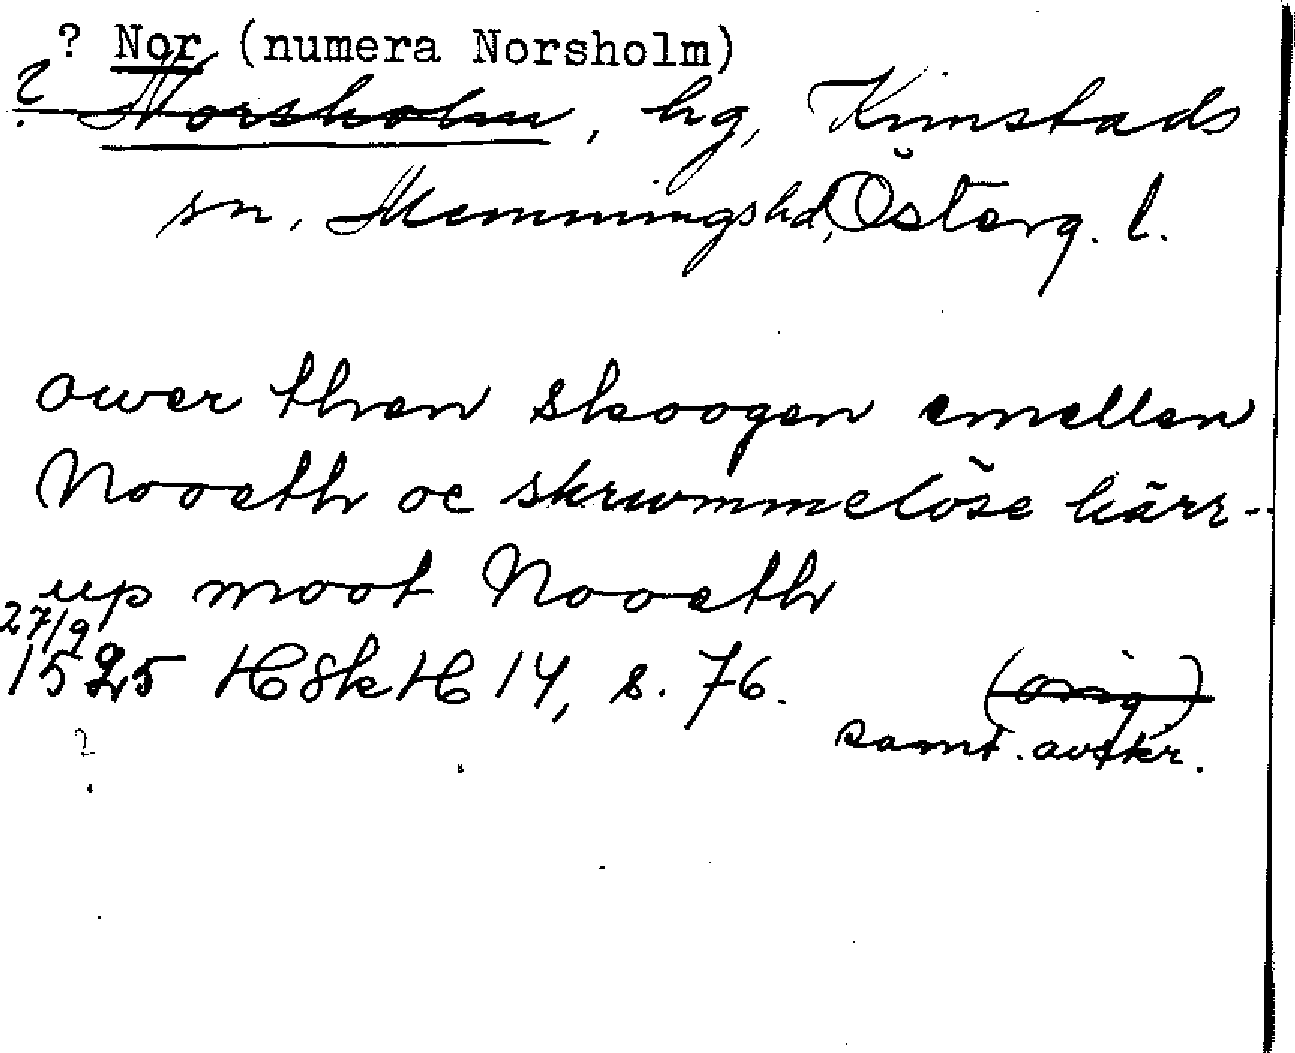 ? Nor (numera Norsholm)
? Norsholm, hg, Kimstads
sn, Memmingshd, Österg. l.
ower then skoogen emellen
Nooeth oc skrummelöse kärr--
up moot Nooeth
27/9
1525 HSkH 14, s. 76. (orig)
samt. avskr.
?